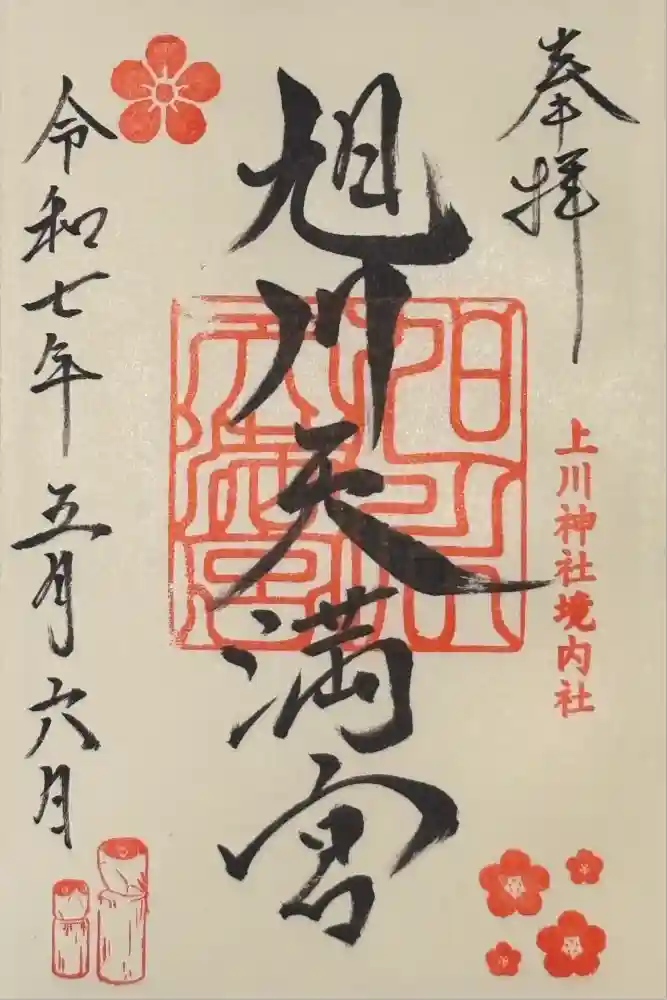 奉拝
上川神社境内社
旭川天満宮
旭川
天満宮
令和七年五月六日